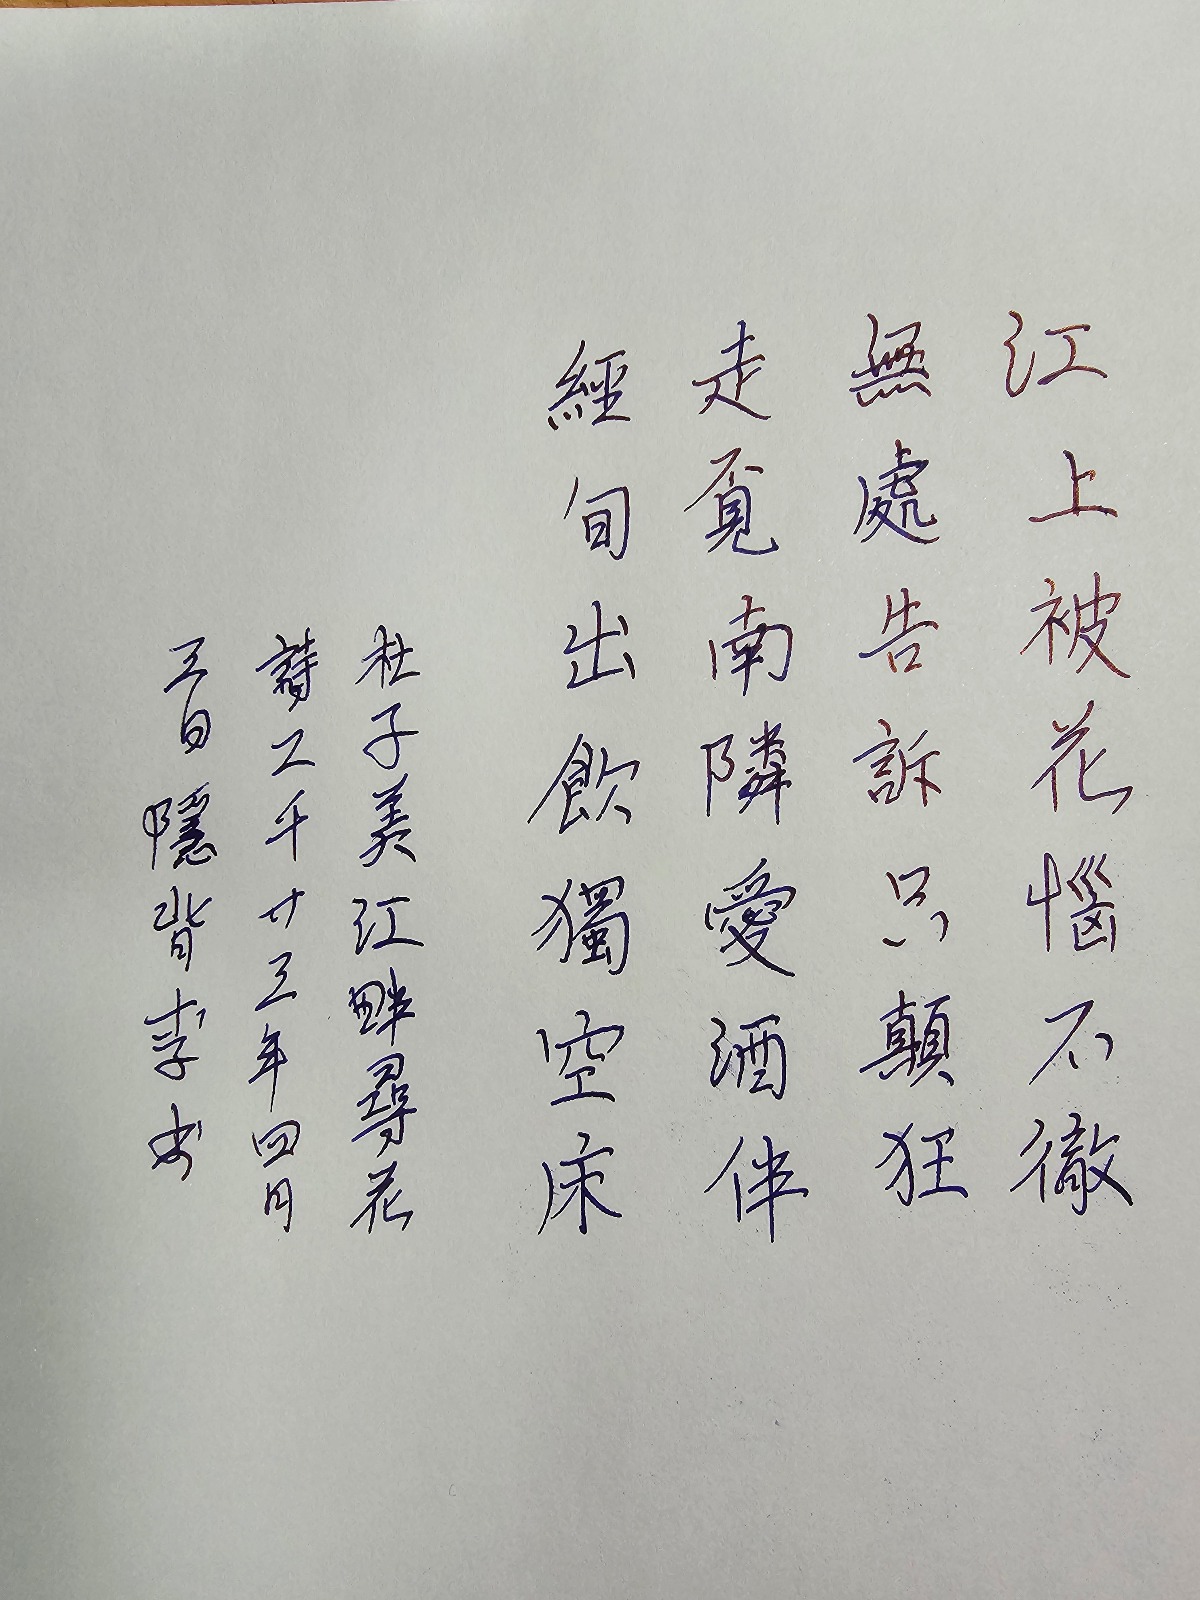 江上被花惱不徹
無處告訴只顛狂
走覓南隣愛酒伴
經旬出飲獨空床
杜子美江畔尋花
詩二千廿三年四月
三日隱背李书